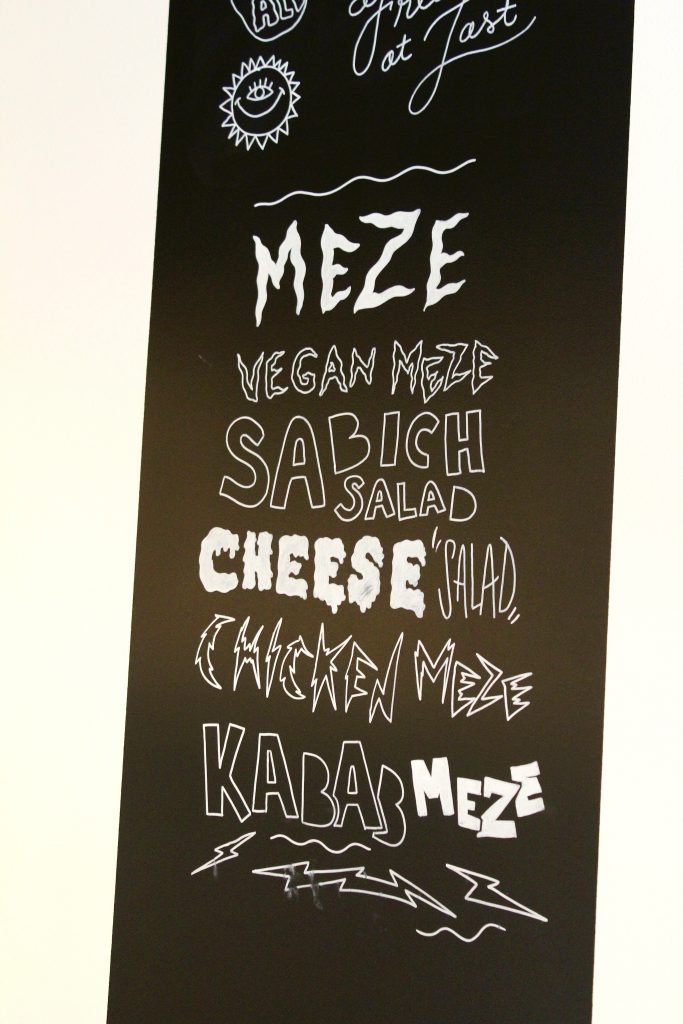 ALL
at Last
MEZE
VEGAN MEZE
SABICH
SALAD
CHEESE "SALAD"
CHICKEN MEZE
KABAB MEZE